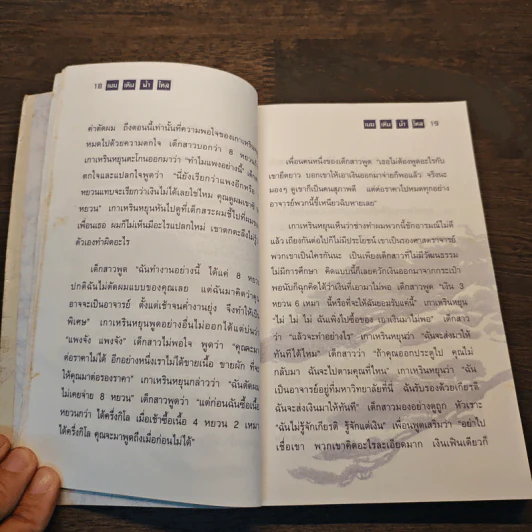 18 เมน เดิม นำ ไหล
ค่าตัดผม ถึงตอนนี้เท่านั้นที่ความพอใจของเกาเหรินหยุน
หมดไปด้วยความตกใจ เด็กสาวบอกว่า 8 หยวน
เกาเหรินหยุนตะโกนออกมาว่า "ทำไมแพงอย่างนี้" เด็กสาว
ตกใจและแปลกใจพูดว่า "นี่ยังเรียกว่าแพงอีกหรือ
หยวนแทบจะเรียกว่าเงินไม่ได้เลยใช่ไหม คุณดูผมเขาซิ
หยวน" เกาเหรินหยุนหันไปดูที่เด็กสระผมชี้ไปที่ผม
เพื่อนเธอ ผมก็ไม่เห็นมีอะไรแปลกใหม่ เขาตกตะลึงไม่รู้
ตัวเองทำผิดอะไร
เด็กสาวพูด "ฉันทำงานอย่างนี้ ได้แค่ 8 หยวน
ปกติฉันไม่ตัดผมแบบของคุณเลย แต่ฉันมาคิดว่าคุณ
อาจจะเป็นอาจารย์ ตั้งแต่เช้าจนค่ำงานยุ่ง จึงทำให้เป็น
พิเศษ" เกาเหรินหยุนพูดอย่างอื่นไม่ออกได้แต่บ่นว่า
"แพงจัง แพงจัง" เด็กสาวไม่พอใจ พูดว่า "คุณจะมา
ต่อราคาไม่ได้ อีกอย่างหนึ่งเราไม่ได้ขายเนื้อ ขายผัก ที่จะ
ให้คุณมาต่อรองราคา" เกาเหรินหยุนกล่าวว่า "ฉันตัดผม
ไม่เคยจ่าย 8 หยวน" เด็กสาวพูดว่า "แต่ก่อนฉันซื้อเนื้อ
หยวนกว่า ได้ครึ่งกิโล เมื่อเช้าซื้อเนื้อ 4 หยวน 2 เหมา
ได้ครึ่งกิโล คุณจะมาพูดถึงเมื่อก่อนไม่ได้"
เมน เดิม นำ ไหล 19
เพื่อนคนหนึ่งของเด็กสาวพูด "เธอไม่ต้องพูดอะไรกับ
เขายืดยาว บอกเขาให้เอาเงินออกมาจ่ายก็พอแล้ว จริงนะ
มองๆ ดูเขาก็เป็นคนสุภาพดี แต่ต่อราคาไปหมดทุกอย่าง
อาจารย์พวกนี้ขี้เหนียวฉิบหายเลย"
เกาเหรินหยุนเห็นว่าช่างทำผมพวกนี้ชักอารมณ์ไม่ดี
แล้ว เถียงกันต่อไปก็ไม่มีประโยชน์ เขาเป็นรองศาสตราจารย์
พวกเขาเป็นใครกันนะ เป็นเพียงเด็กสาวที่ไม่มีวัฒนธรรม
ไม่มีการศึกษา คิดแบบนี้ก็เลยควักเงินออกมาจากกระเป๋า
พอนับก็ฉุกคิดได้ว่าเงินที่เอามาไม่พอ เด็กสาวพูด "เงิน 3
หยวน 6 เหมา นี้หรือที่จะให้ฉันยอมรับแค่นี้" เกาเหรินหยุน
"ไม่ ไม่ ไม่ ฉันเพิ่งไปซื้อของ เอาเงินมาไม่พอ" เด็กสาว
ว่า "แล้วจะทำอย่างไร" เกาเหรินหยุนว่า "ฉันจะส่งมาให้
ทันทีได้ไหม" เด็กสาวว่า "ถ้าคุณออกประตูไป คุณไม่
กลับมา ฉันจะไปตามคุณที่ไหน" เกาเหรินหยุนว่า "ฉัน
เป็นอาจารย์อยู่ที่มหาวิทยาลัยที่นี่ ฉันรับรองด้วยเกียรติ
ฉันจะส่งเงินมาให้ทันที" เด็กสาวมองอย่างดูถูก หัวเราะ
"ฉันไม่รู้จักเกียรติ รู้จักแต่เงิน" เพื่อนพูดเสริมว่า "อย่าไป
เชื่อเขา พวกเขาคิดอะไรละเอียดมาก เงินเฟินเดียวก็